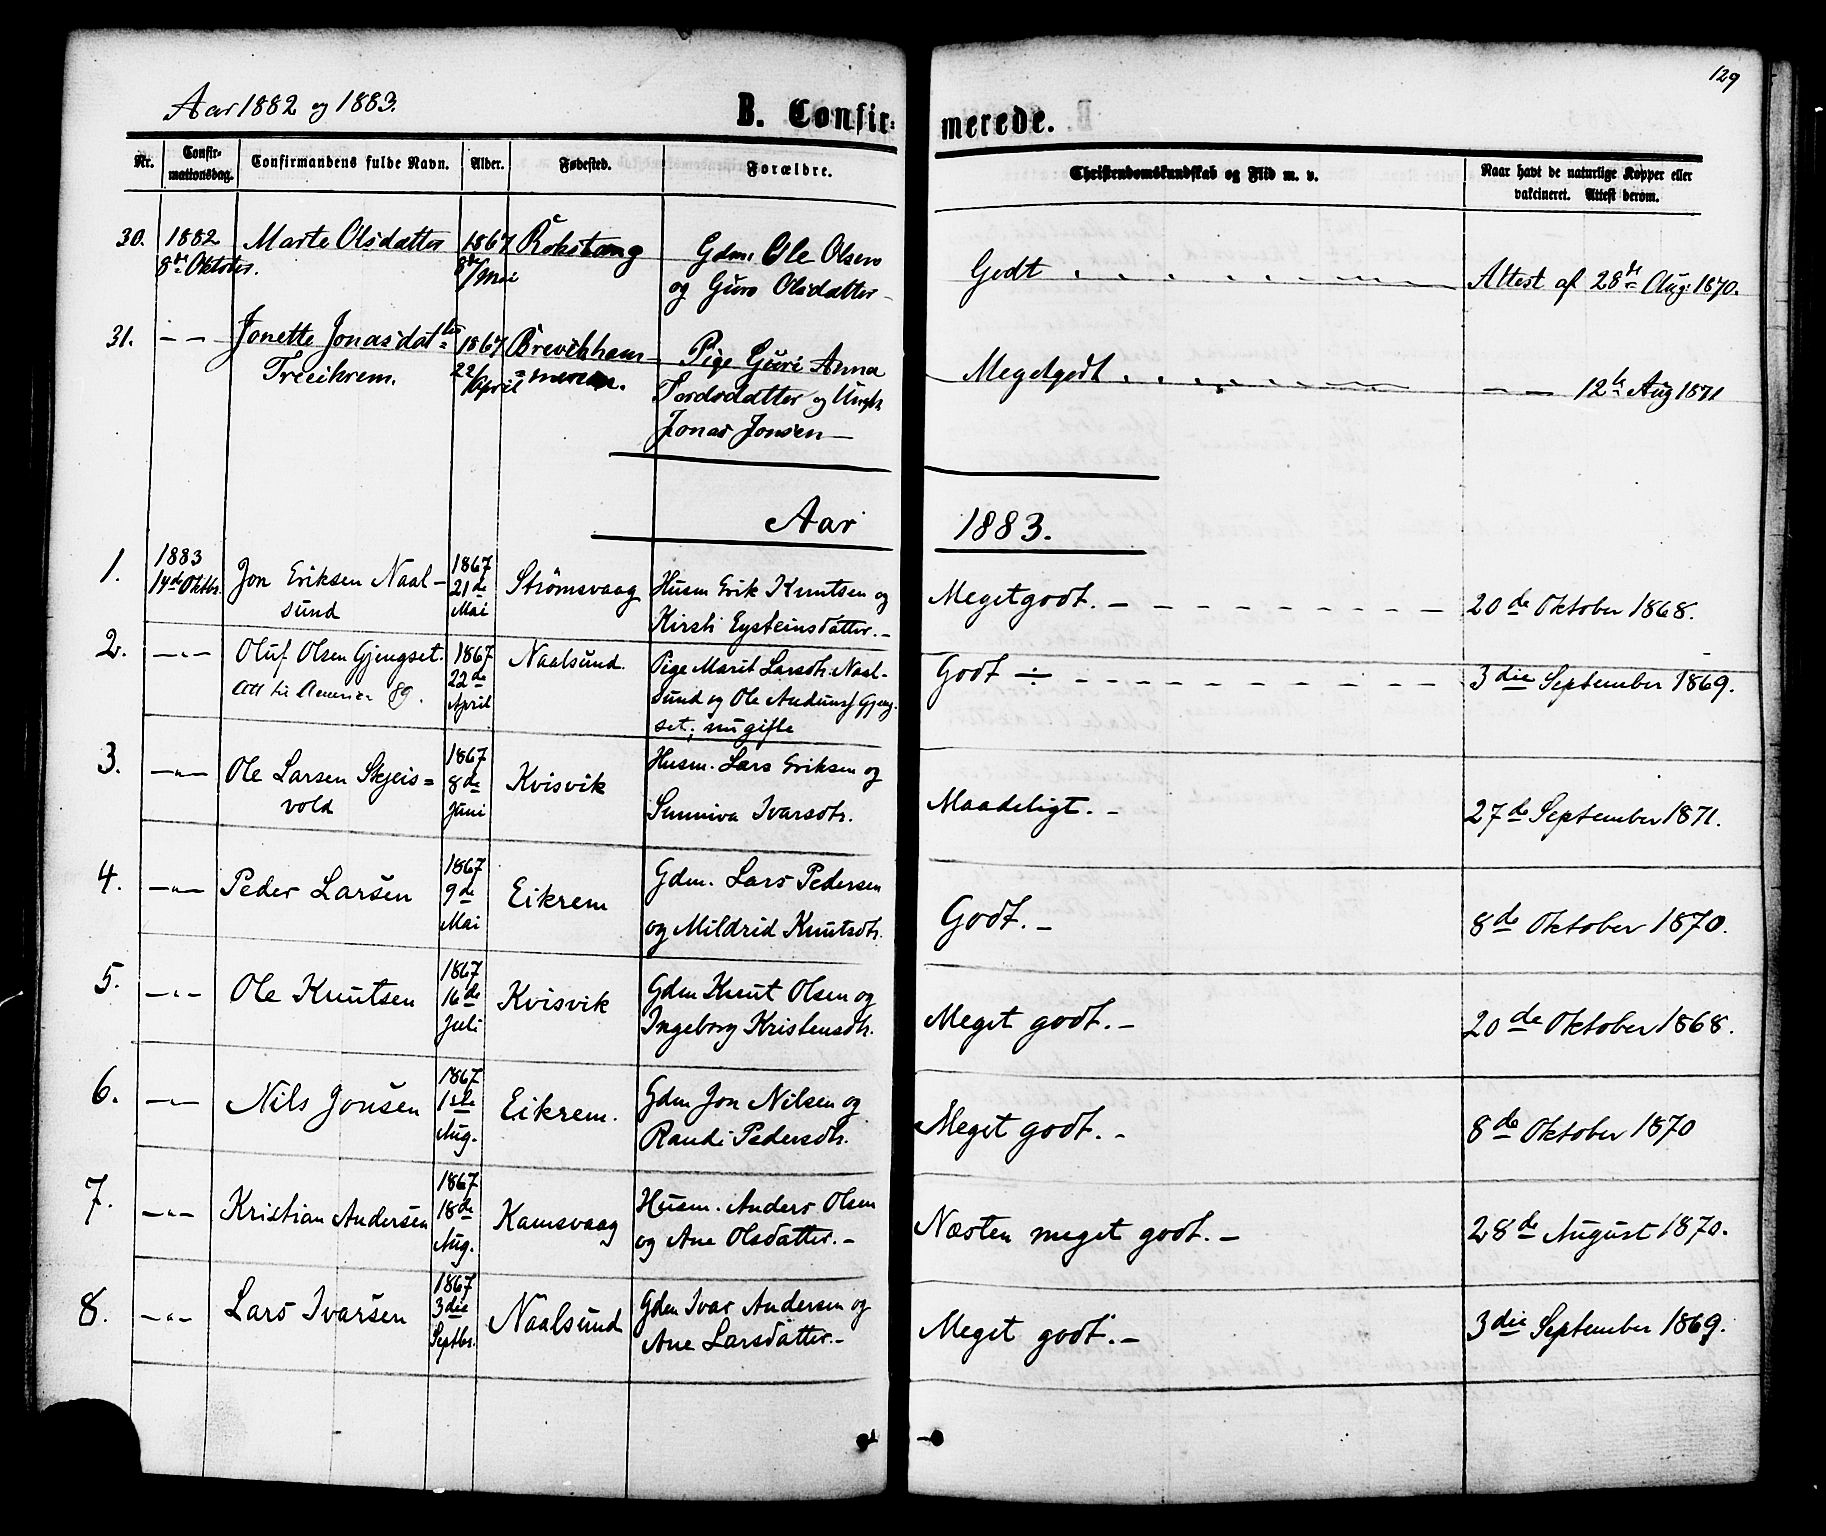 129
Aar 1882 og 1883.
B. Confirmerede.
Nr. Confirmationsdag. Confirmandens fulde Navn. Alder. Fødested. Forældre. Christendomskundskab og Flid m. v. Naar havt de naturlige Kopper eller vakcineret. Attest derom.
30. 1882 8de Oktober. Marte Olsdatter 1867 8de/Mai Rokstang Gdm. Ole Olsen
og Guro Olsdatter Godt Attest af 28de Aug. 1870.
31. — — Jonette Jonasdatter
Treeikrem. 1867 22/April Brevikhammeren. Pige Guri Anna
Tordsdatter og Ungk.
Jonas Jonsen — Megetgodt — — 12te Aug 1871
Aar 1883.
1. 1883 14de Oktbr. Jon Eriksen Naal-
sund 1867 21de Mai Strømsvaag Husm Erik Knutsen og
Kirsti Eysteinsdatter. — Megetgodt. — 20de Oktober 1868.
2. — " — Oluf Olsen Gjengset.
Att til America 89. 1867 22de April Naalsund. Pige Marit Larsdtr. Naal-
sund og Ole Andunsf Gjeng-
set; nu gifte Godt 3die September 1869.
3. — " — Ole Larsen Skjeis=
vold 1867 8de Juni Kvisvik Husm. Lars Eriksen og
Sunniva Ivarsdtr. Maadeligt. - 27de September 1871.
4. — " — Peder Larsen 1867 9de Mai Eikrem Gdm. Lars Pedersen
og Mildrid Knutsdtr. Godt. - 8de Oktober 1870.
5. — " — Ole Knutsen 1867 16de Juli Kvisvik Gdm Knut Olsen og
Ingeborg Kristensdtr. Meget godt. — 20de Oktober 1868.
6. — " — Nils Jonsen 1867 1ste Aug. Eikrem. Gdm Jon Nilsen og
Randi Pedersdtr. Meget godt. - 8de Oktober 1870
7. — " — Kristian Andersen 1867 18de Aug. Kamsvaag Husm. Anders Olsen
og Ane Olsdatter. - Næsten meget godt. — 28de August 1870.
8. — " — Lars Ivarsen 1867 3die Septbr. Naalsund Gdm Ivar Andersen og
Ane Larsdatter. - Meget godt. — 3die September 1869.